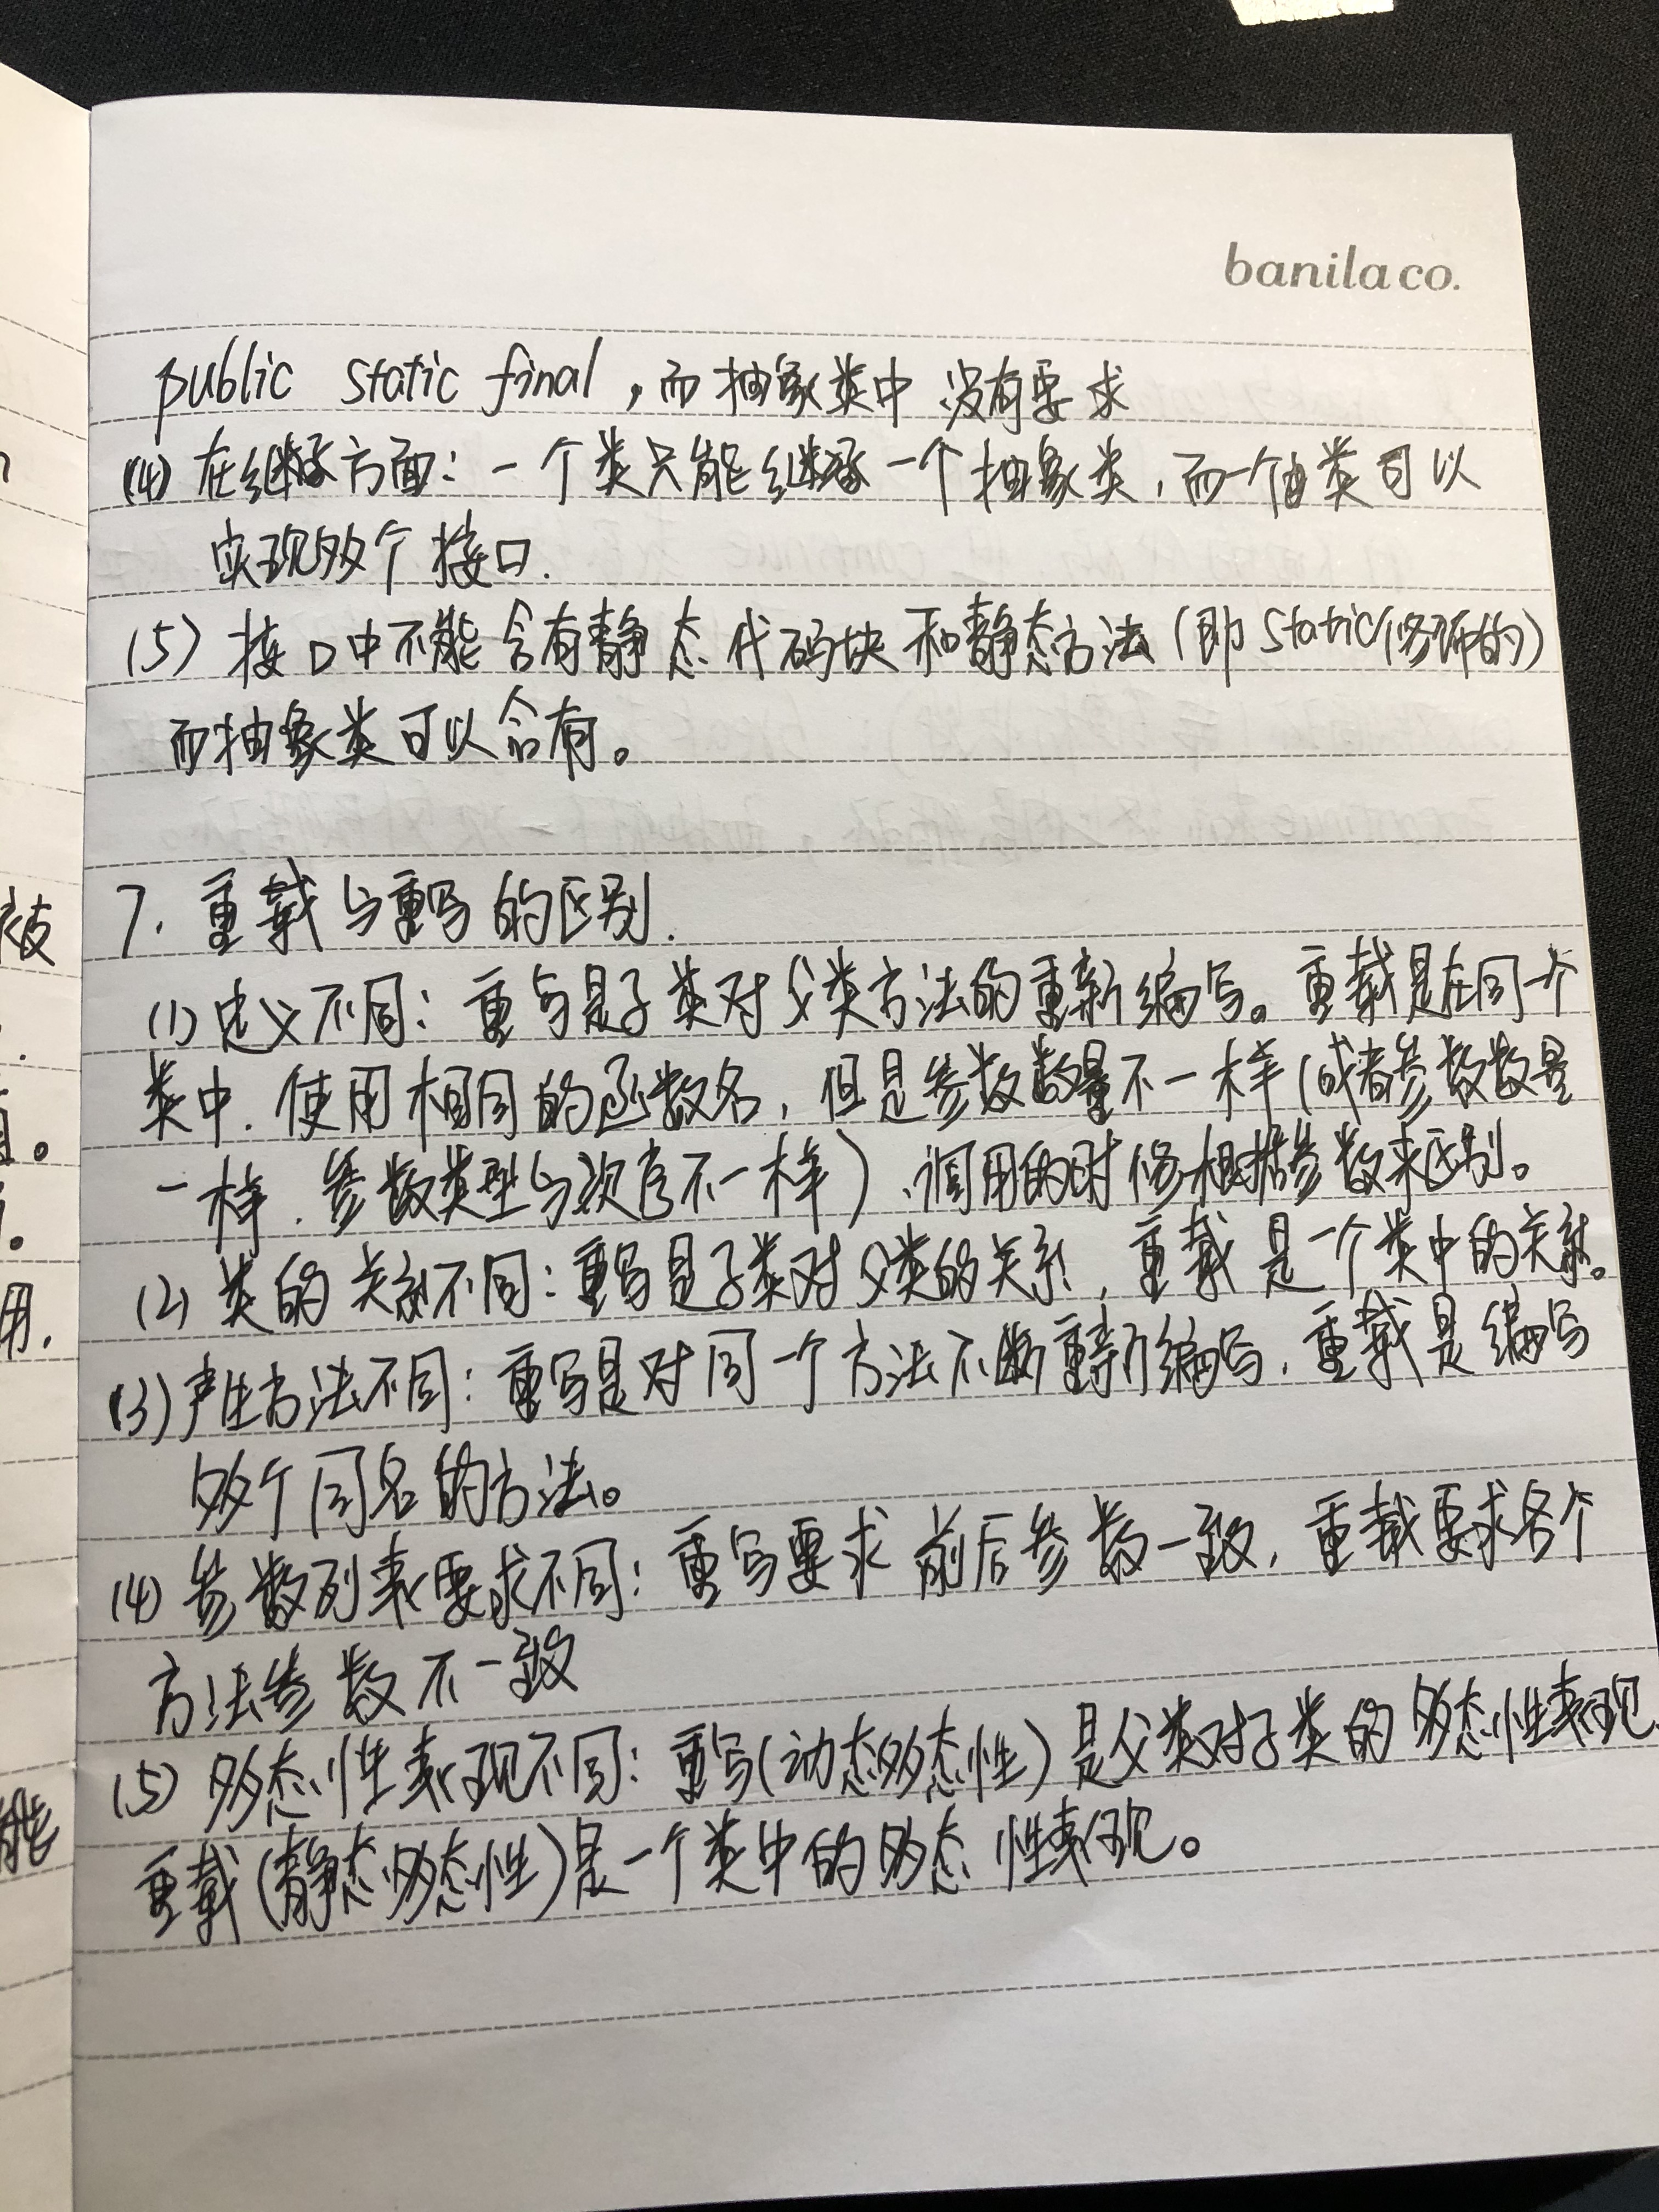 banila co.
public static final，而抽象类中没有要求
(4) 在继承方面：一个类只能继承一个抽象类，而一个类可以
实现多个接口.
(5) 接口中不能含有静态代码块和静态方法（即static修饰的）
而抽象类可以含有。
7. 重载与重写的区别.
(1) 定义不同：重写是子类对父类方法的重新编写。重载是在同一个
类中. 使用相同的函数名，但是参数数量不一样（或者参数数量
一样. 参数类型与次序不一样）、调用的时候根据参数来区别。
(2) 类的关系不同：重写是子类对父类的关系，重载是一个类中的关系。
(3) 产生方法不同：重写是对同一个方法不断重新编写，重载是编写
多个同名的方法。
(4) 参数列表要求不同：重写要求前后参数一致，重载要求各个
方法参数不一致
(5) 多态性表现不同：重写（动态多态性）是父类对子类的多态性表现.
重载（静态多态性）是一个类中的多态性表现。
被
。
用.
能